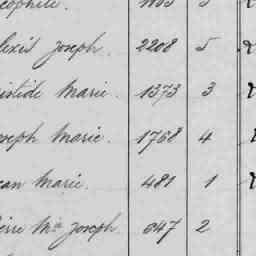 eophile.
lexis Joseph. 2208 5
istide Marie. 1373 3
oseph Marie. 1768 4
ean Marie. 481 1
ierre Mie Joseph. 647 2